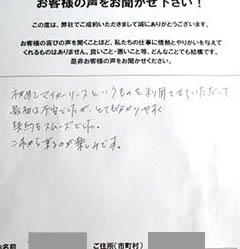 お客様の声をお聞かせ下さい!
この度は、弊社でご成約いただきまして誠にありがとうございます。
お客様の喜びの声を聞くことほど、私たちの仕事に情熱とやりがいを与えて
くれるものはありません。良いこと・悪いこと等、どんなことでも結構です。
是非お客様の声をお聞かせください。
初めてマイカーリースというものを利用させていただいて
最初は不安でしたが、とても分かりやすく
契約もスムーズでした。
これから乗るのが楽しみです。
名前
ご住所(市町村)